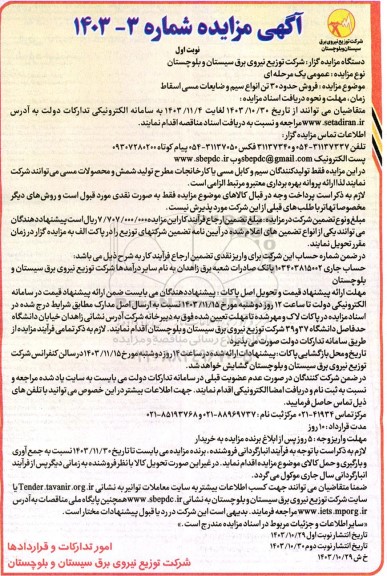 شرکت توزیع نیروی برق
سیستان و بلوچستان
آگهی مزایده شماره ۳- ۱۴۰۳
نوبت اول
دستگاه مزایده گزار: شرکت توزیع نیروی برق سیستان و بلوچستان
نوع مزایده: عمومی یک مرحله ای
موضوع مزایده: فروش حدود ۳۰ تن انواع سیم و ضایعات مسی اسقاط
زمان، مهلت و نحوه دریافت اسناد مزایده:
متقاضیان می توانند از تاریخ ۱۴۰۳/۱۰/۳۰ لغایت ۱۴۰۳/۱۱/۴ به سامانه الکترونیکی تدارکات دولت به آدرس
www.setadiran.ir مراجعه و نسبت به دریافت اسناد مناقصه اقدام نمایند.
اطلاعات تماس مزایده گزار:
تلفن ۳۱۱۳۷۳۳۷-۰۵۴ و ۳۱۱۳۷۳۴۰ فکس ۳۱۱۳۷۰۵۰-۰۵۴ پیام کوتاه ۰۹۳۰۷۲۸۰۲۰۰
پست الکترونیک sbepdc@gmail.com وب www.sbepdc.ir
در این مزایده فقط تولیدکنندگان سیم و کابل مسی یا کارخانجات مطرح تولید شمش و محصولات مسی می توانند شرکت
نمایند لذا ارائه پروانه بهره برداری معتبر و مرتبط الزامی است.
لازم به ذکر است پرداخت وجه در قبال کالاهای موضوع مزایده فقط به صورت نقدی مورد قبول است و روش های دیگر
مخصوصا تهاتر با طلب های قبلی از این شرکت مورد پذیرش نیست.
مبلغ و نوع تضمین شرکت در مزایده: مبلغ تضمین ارجاع فرآیند کار این مزایده ۷/۷۰۷/۰۰۰/۰۰۰ ریال است پیشنهاد دهندگان
می توانند یکی از انواع تضمین های اعلام شده در آیین نامه تضمین شرکتهای توزیع را در پاکت الف به مزایده گزار در زمان
مقرر تحویل نمایند.
در ضمن شماره حساب این شرکت برای واریز نقدی تضمین ارجاع فرآیند کار به شرح ذیل می باشد:
حساب جاری ۰۱۰۳۴۰۳۸۱۵۰۰۲ بانک صادرات شعبه برق زاهدان به نام سایر درآمدها شرکت توزیع نیروی برق سیستان و
بلوچستان
مهلت ارائه پیشنهاد قیمت و تحویل اصل پاکات: پیشنهاد دهندگان می بایست ضمن ارائه پیشنهاد قیمت در سامانه
الکترونیکی دولت تا ساعت ۱۲ روز دوشنبه مورخ ۱۴۰۳/۱۱/۱۵ نسبت به ارسال اصل مدارک مطابق شرایط درج شده در
اسناد مزایده در پاکات لاک و مهر شده تا مهلت تعیین شده فوق به دبیرخانه شرکت آدرس نشانی زاهدان خیابان دانشگاه
حدفاصل دانشگاه ۳۷ و ۳۹ شرکت توزیع نیروی برق سیستان و بلوچستان اقدام نمایند. لازم به ذکر تمامی فرآیند مزایده از
طریق سامانه تدارکات دولت صورت می پذیرد.
تاریخ و محل بازگشایی پاکات: پیشنهادات ارائه شده در ساعت ۱۴ روز دوشنبه مورخ ۱۴۰۳/۱۱/۱۵ در سالن کنفرانس شرکت
توزیع نیروی برق سیستان و بلوچستان گشایش خواهد شد.
در ضمن شرکت کنندگان در صورت عدم عضویت قبلی در سامانه تدارکات دولت می بایست به سایت یاد شده مراجعه و
نسبت به ثبت نام و دریافت امضا الکترونیکی اقدام نمایند. جهت اطلاعات بیشتر در این خصوص می توانید با تلفن های
ذیل تماس حاصل فرمایید.
مرکز تماس ۴۱۹۳۴-۰۲۱ مرکز ثبت نام: ۸۸۹۶۹۷۳۷-۰۲۱ و ۸۵۱۹۳۷۶۸-۰۲۱
مدت قرارداد: ۱۰ روز
مهلت واریز وجه: ۵ روز پس از ابلاغ برنده مزایده به خریدار
لازم به ذکر است با توجه به فرآیند انبارگردانی فروشنده، برنده مزایده می بایست تا تاریخ ۱۴۰۳/۱۱/۳۰ نسبت به جمع آوری
و بارگیری و حمل کالای موضوع مزایده اقدام نماید. در غیر این صورت تحویل کالا با نظر فروشنده به زمانی دیگر پس از فرآیند
انبارگردانی سال جاری موکول می گردد.
ضمنا متقاضیان می توانند جهت کسب اطلاعات بیشتر به سایت معاملات توانیر به نشانی Tender.tavanir.org.ir یا
سایت شرکت توزیع نیروی برق سیستان و بلوچستان به نشانی www.sbepdc.ir همچنین پایگاه ملی مناقصات به آدرس
www.iets.mporg.ir مراجعه فرمایند. بدیهی است این شرکت در رد یا قبول پیشنهادات مختار است.
«سایر اطلاعات و جزئیات مربوط در اسناد مزایده مندرج است.»
تاریخ انتشار نوبت اول ۱۴۰۳/۱۰/۲۹
تاریخ انتشار نوبت دوم ۱۴۰۳/۱۰/۳۰
خ ش ۱۴۰۳/۱۰/۲۹
امور تدارکات و قراردادها
شرکت توزیع نیروی برق سیستان و بلوچستان